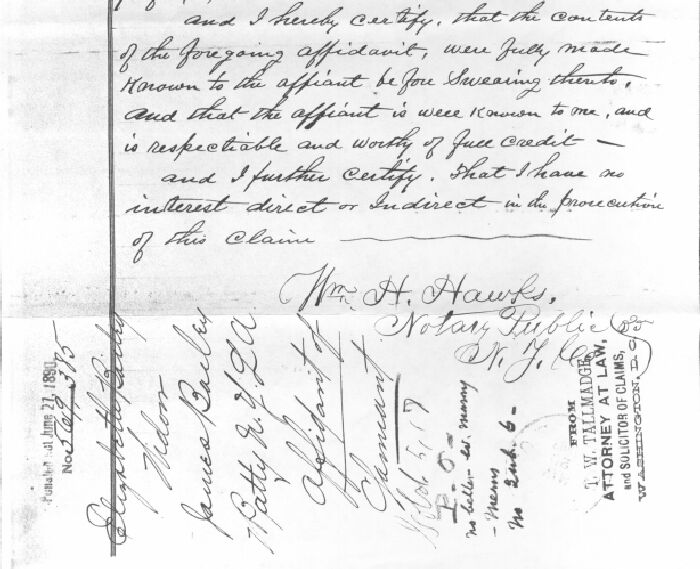 and I hereby certify. that the contents
of the foregoing affidavit, were fully made
Known to the affiant before Swearing thereto,
and that the affiant is well Known to me, and
is respectiable and worthy of full credit —
and I further certify. that I have no
interest direct or Indirect in the prosecution
of this Claim
Wm. H. Hawks,
Notary Public
N. Y. Co
June 27, 1890
No
Elizabeth Bailey
Widow
James Bailey
Batty
Affidavit of
Claimant
P. O.
no
FROM
T. W. TALLMADGE,
ATTORNEY AT LAW,
and SOLICITOR OF CLAIMS,
WASHINGTON, D. C.